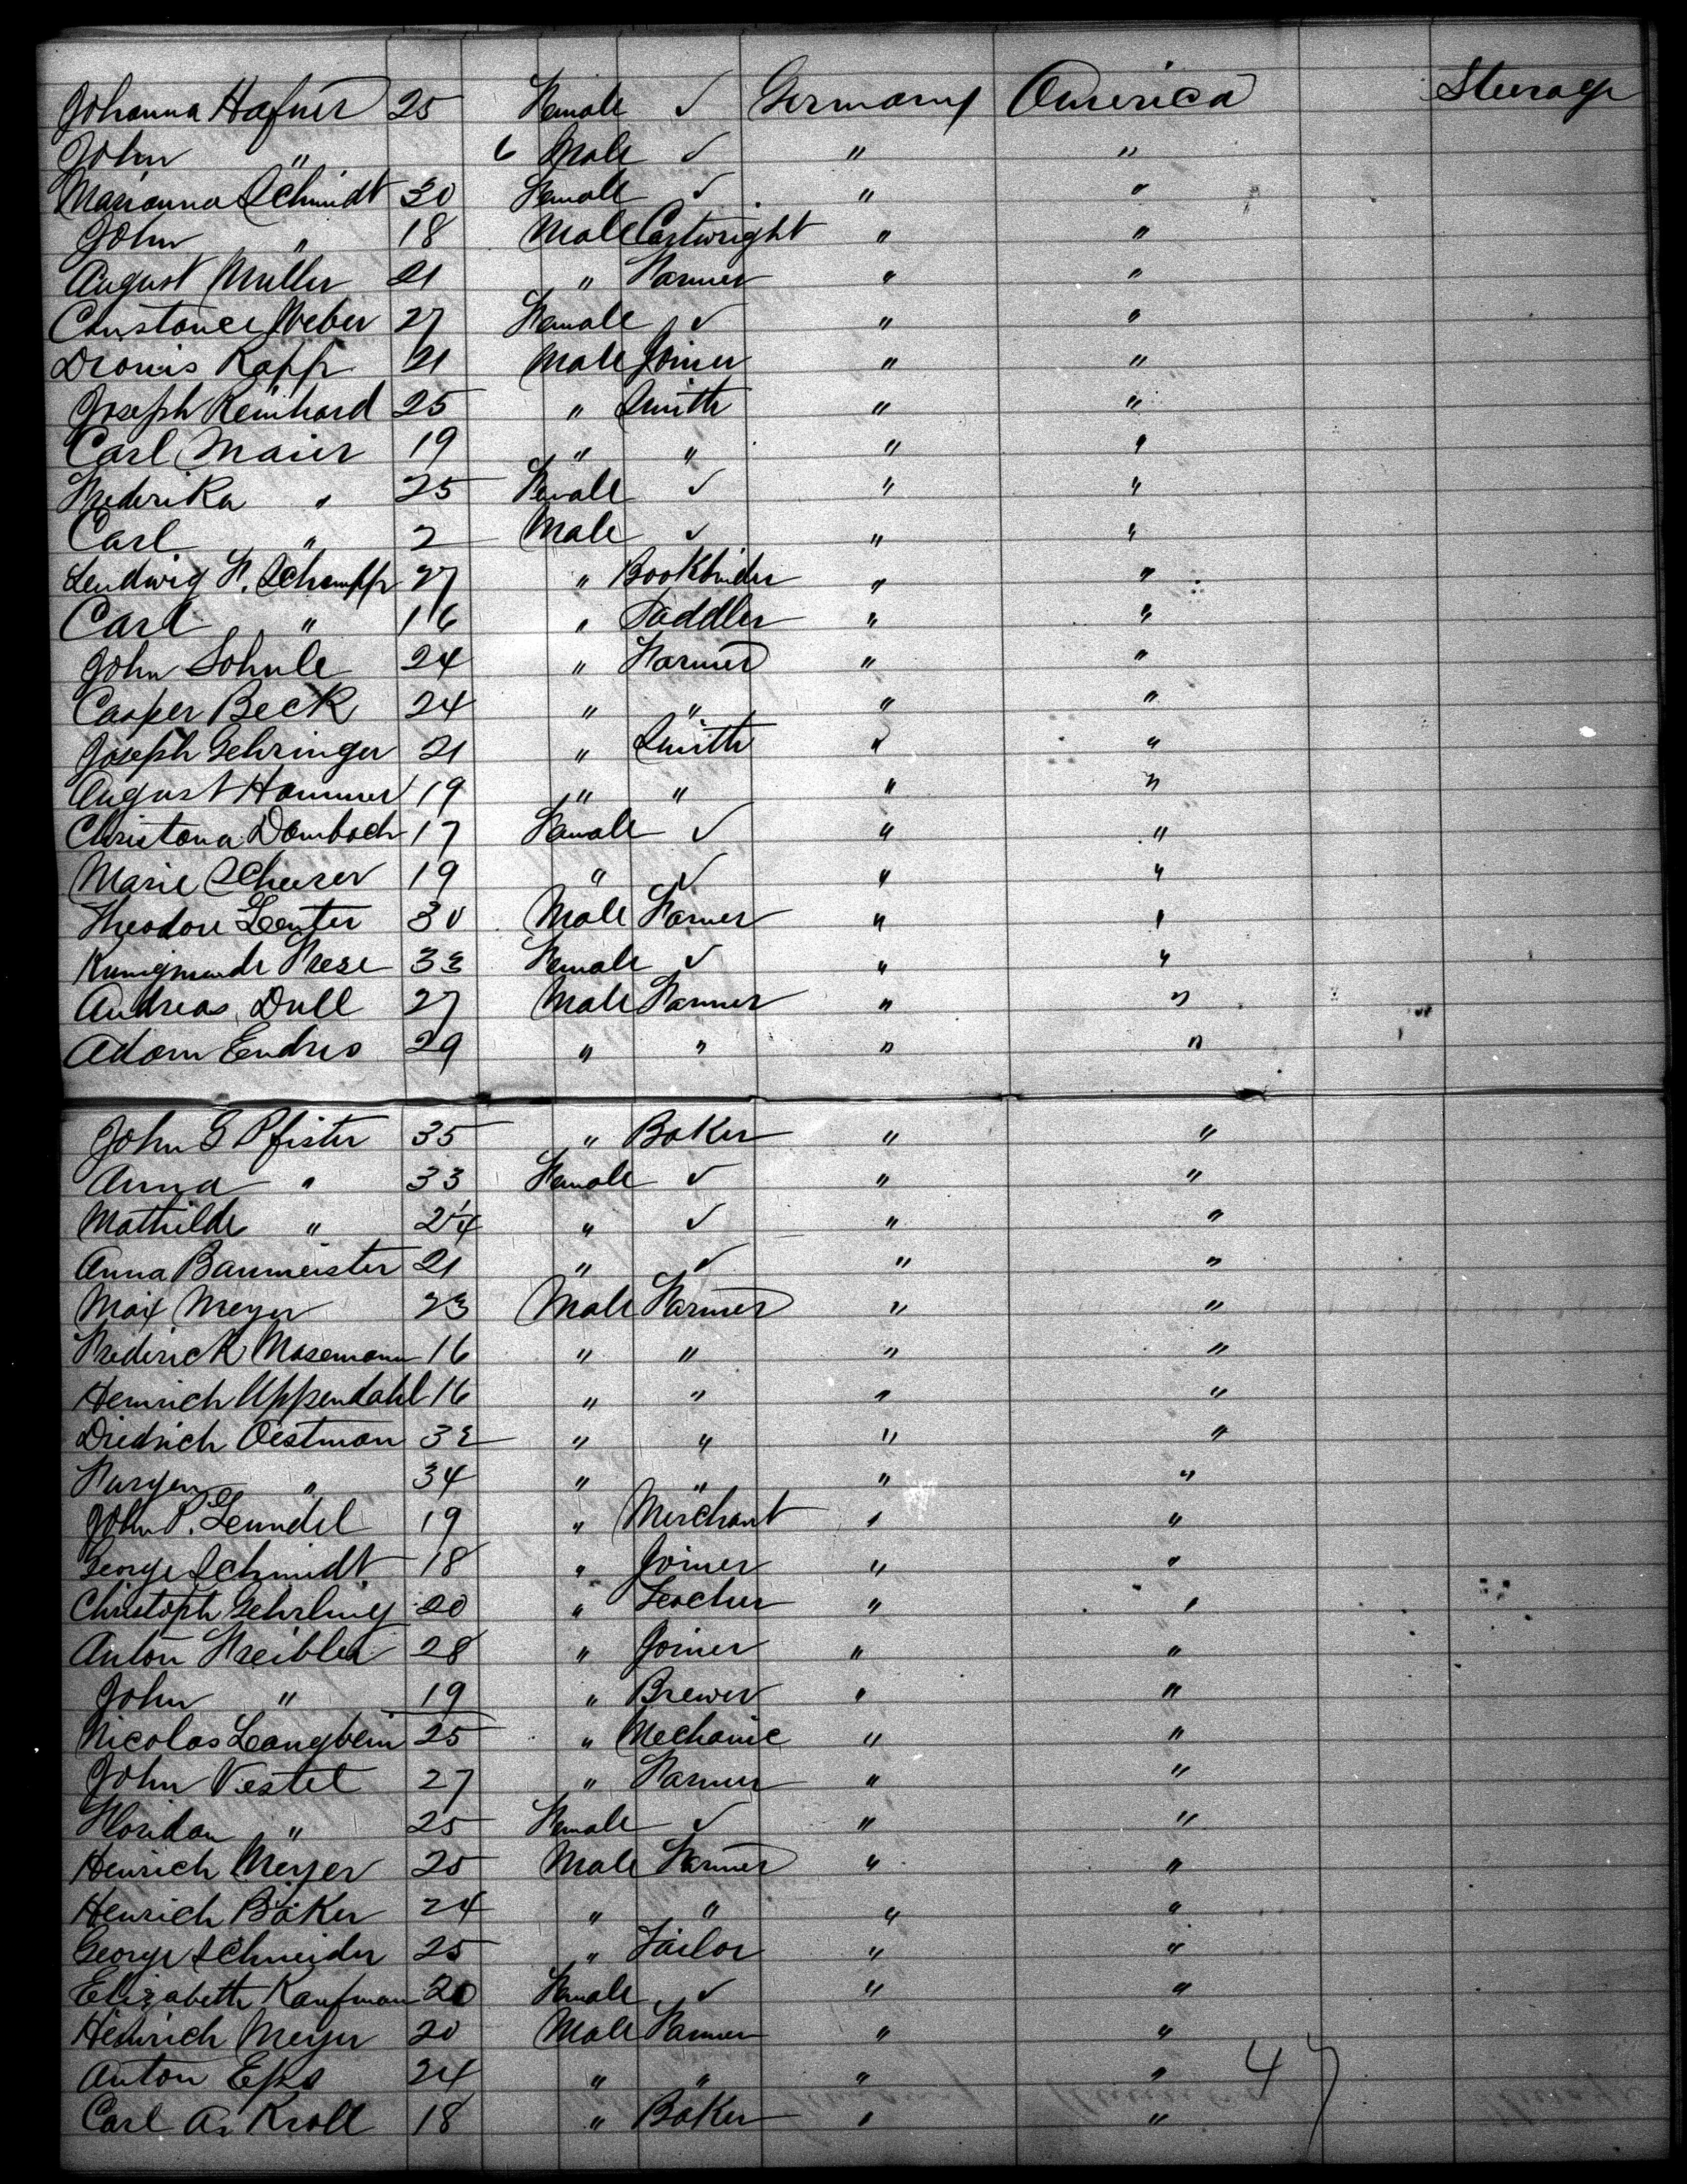 Johanna Hafner 25 Female ✓ Germany America Steerage
John " 6 Male ✓ " "
Marianna Schmidt 30 Female ✓ " "
John " 18 Male Cartwright " "
August Muller 21 " Farmer " "
Constance Weber 27 Female ✓ " "
Dionis Rapp 21 Male Joiner " "
Joseph Reinhard 25 " Smith " "
Carl Maier 19 " " " "
Frederika " 25 Female ✓ " "
Carl " 2 Male ✓ " "
Ludwig F. Schempp 27 " Bookbinder " "
Carl " 16 " Saddler " "
John Sohnle 24 " Farmer " "
Casper Beck 24 " " " "
Joseph Gehringer 21 " Smith " "
August Hammer 19 " " " "
Christona Dombach 17 Female ✓ " "
Marie Scheurer 19 " ✓ " "
Theodore Lenter 30 Male Farmer " "
Kunigmunde Frese 33 Female ✓ " "
Andreas Dull 27 Male Farmer " "
Adam Endres 29 " " " "
John G Pfister 35 " Baker " "
Anna " 33 Female ✓ " "
Mathilde " 2 1/4 " ✓ " "
Anna Baumeister 21 " ✓ " "
Max Meyer 23 Male Farmer " "
Frederick Masemann 16 " " " "
Heinrich Uppendahl 16 " " " "
Diedrich Oestman 32 " " " "
" 34 " " " "
John P. 19 " Merchant " "
George Schmidt 18 " Joiner " "
Christoph Gehrling 20 " Teacher " "
Anton Freibler 28 " Joiner " "
John " 19 " Brewer " "
Nicolas Langbein 25 " Mechanic " "
John Vestel 27 " Farmer " "
Floridan " 25 Female ✓ " "
Heinrich Meyer 25 Male Farmer " "
Henrich Böker 24 " " " "
George Schneider 25 " Tailor " "
Elizabeth Kaufman 20 Female ✓ " "
Heinrich Meyer 20 Male Farmer " "
Anton Eps 24 " " " " 47
Carl A. Kroll 18 " Baker " "